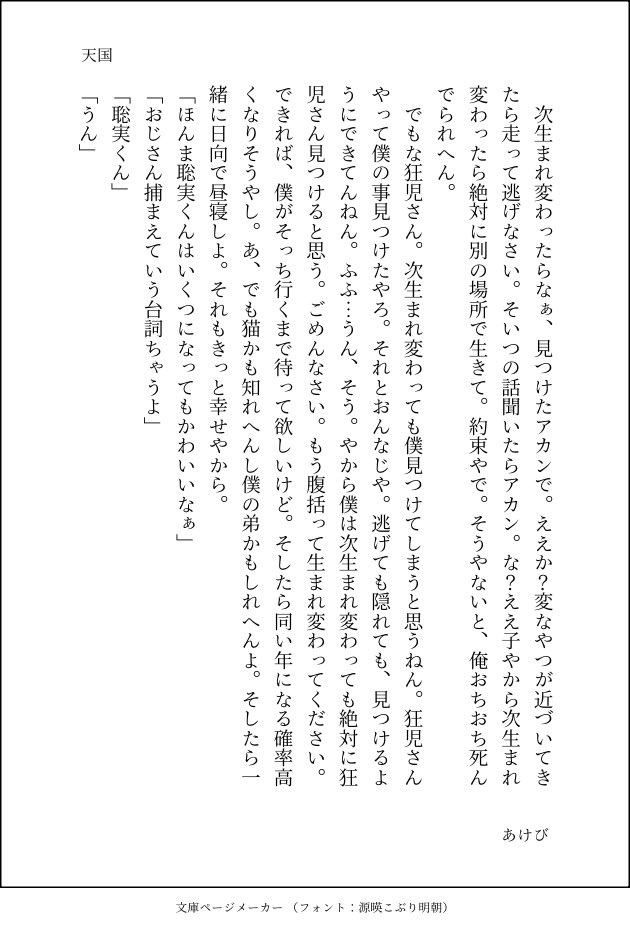 天国
　次生まれ変わったらなぁ、見つけたアカンで。ええか？変なやつが近づいてき
たら走って逃げなさい。そいつの話聞いたらアカン。な？ええ子やから次生まれ
変わったら絶対に別の場所で生きて。約束やで。そうやないと、俺おちおち死ん
でられへん。
　でもな狂児さん。次生まれ変わっても僕見つけてしまうと思うねん。狂児さん
やって僕の事見つけたやろ。それとおんなじや。逃げても隠れても、見つけるよ
うにできてんねん。ふふ…うん、そう。やから僕は次生まれ変わっても絶対に狂
児さん見つけると思う。ごめんなさい。もう腹括って生まれ変わってください。
できれば、僕がそっち行くまで待って欲しいけど。そしたら同い年になる確率高
くなりそうやし。あ、でも猫かも知れへんし僕の弟かもしれへんよ。そしたら一
緒に日向で昼寝しよ。それもきっと幸せやから。
「ほんま聡実くんはいくつになってもかわいいなぁ」
「おじさん捕まえていう台詞ちゃうよ」
「聡実くん」
「うん」
あけび
文庫ページメーカー（フォント：源暎こぶり明朝）